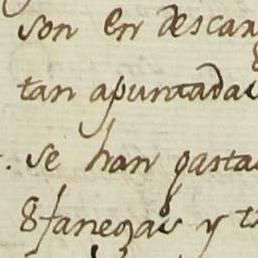 son en descar
tan apuntadas
. se han gasta
8 fanegas y t